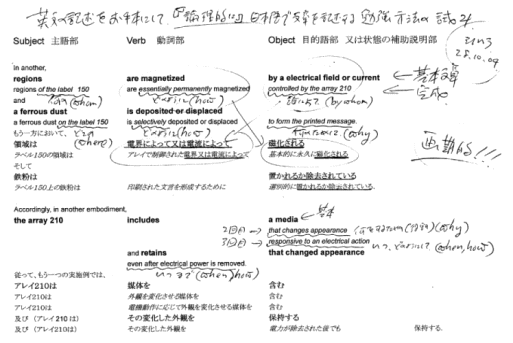 英文の記述をお手本にして、『論理的に』日本語で文章を記述する勉強方法の試み
28.10.09
Subject 主語部 Verb 動詞部 Object 目的語部 又は状態の補助説明部
in another,
regions are magnetized by a electrical field or current ← 基本文章
regions of the label 150 are essentially permanently magnetized controlled by the array 210 ← 完成
and 何の (whom) どのように (how) 誰によって (by whom)
a ferrous dust is deposited or displaced
a ferrous dust on the label 150 is selectively deposited or displaced to form the printed message.
もう一方において、 どこの (where) どのように (how) 何のために (why)
領域は 電界によって又は電流によって 磁化される
ラベル150の領域は アレイで制御された電界又は電流によって 基本的に永久に磁化される
そして 画期的!!!
鉄粉は 置かれるか除去される
ラベル150上の鉄粉は 印刷された文言を形成するために 選別的に置かれるか除去されている.
Accordingly, in another embodiment, 基本
the array 210 includes a media
2回目→ that changes appearance (why)
3回目→ responsive to an electrical action いつ、どのようにして (when, how)
and retains that changed appearance
even after electrical power is removed.
いつまで (when) (how)
従って、もう一つの実施例では、
アレイ210は 媒体を 含む
アレイ210は 外観を変化させる媒体を 含む
アレイ210は 電機動作に応じて外観を変化させる媒体を 含む
及び (アレイ210は) その変化した外観を 保持する
及び (アレイ210は) その変化した外観を 電力が除去された後でも 保持する.